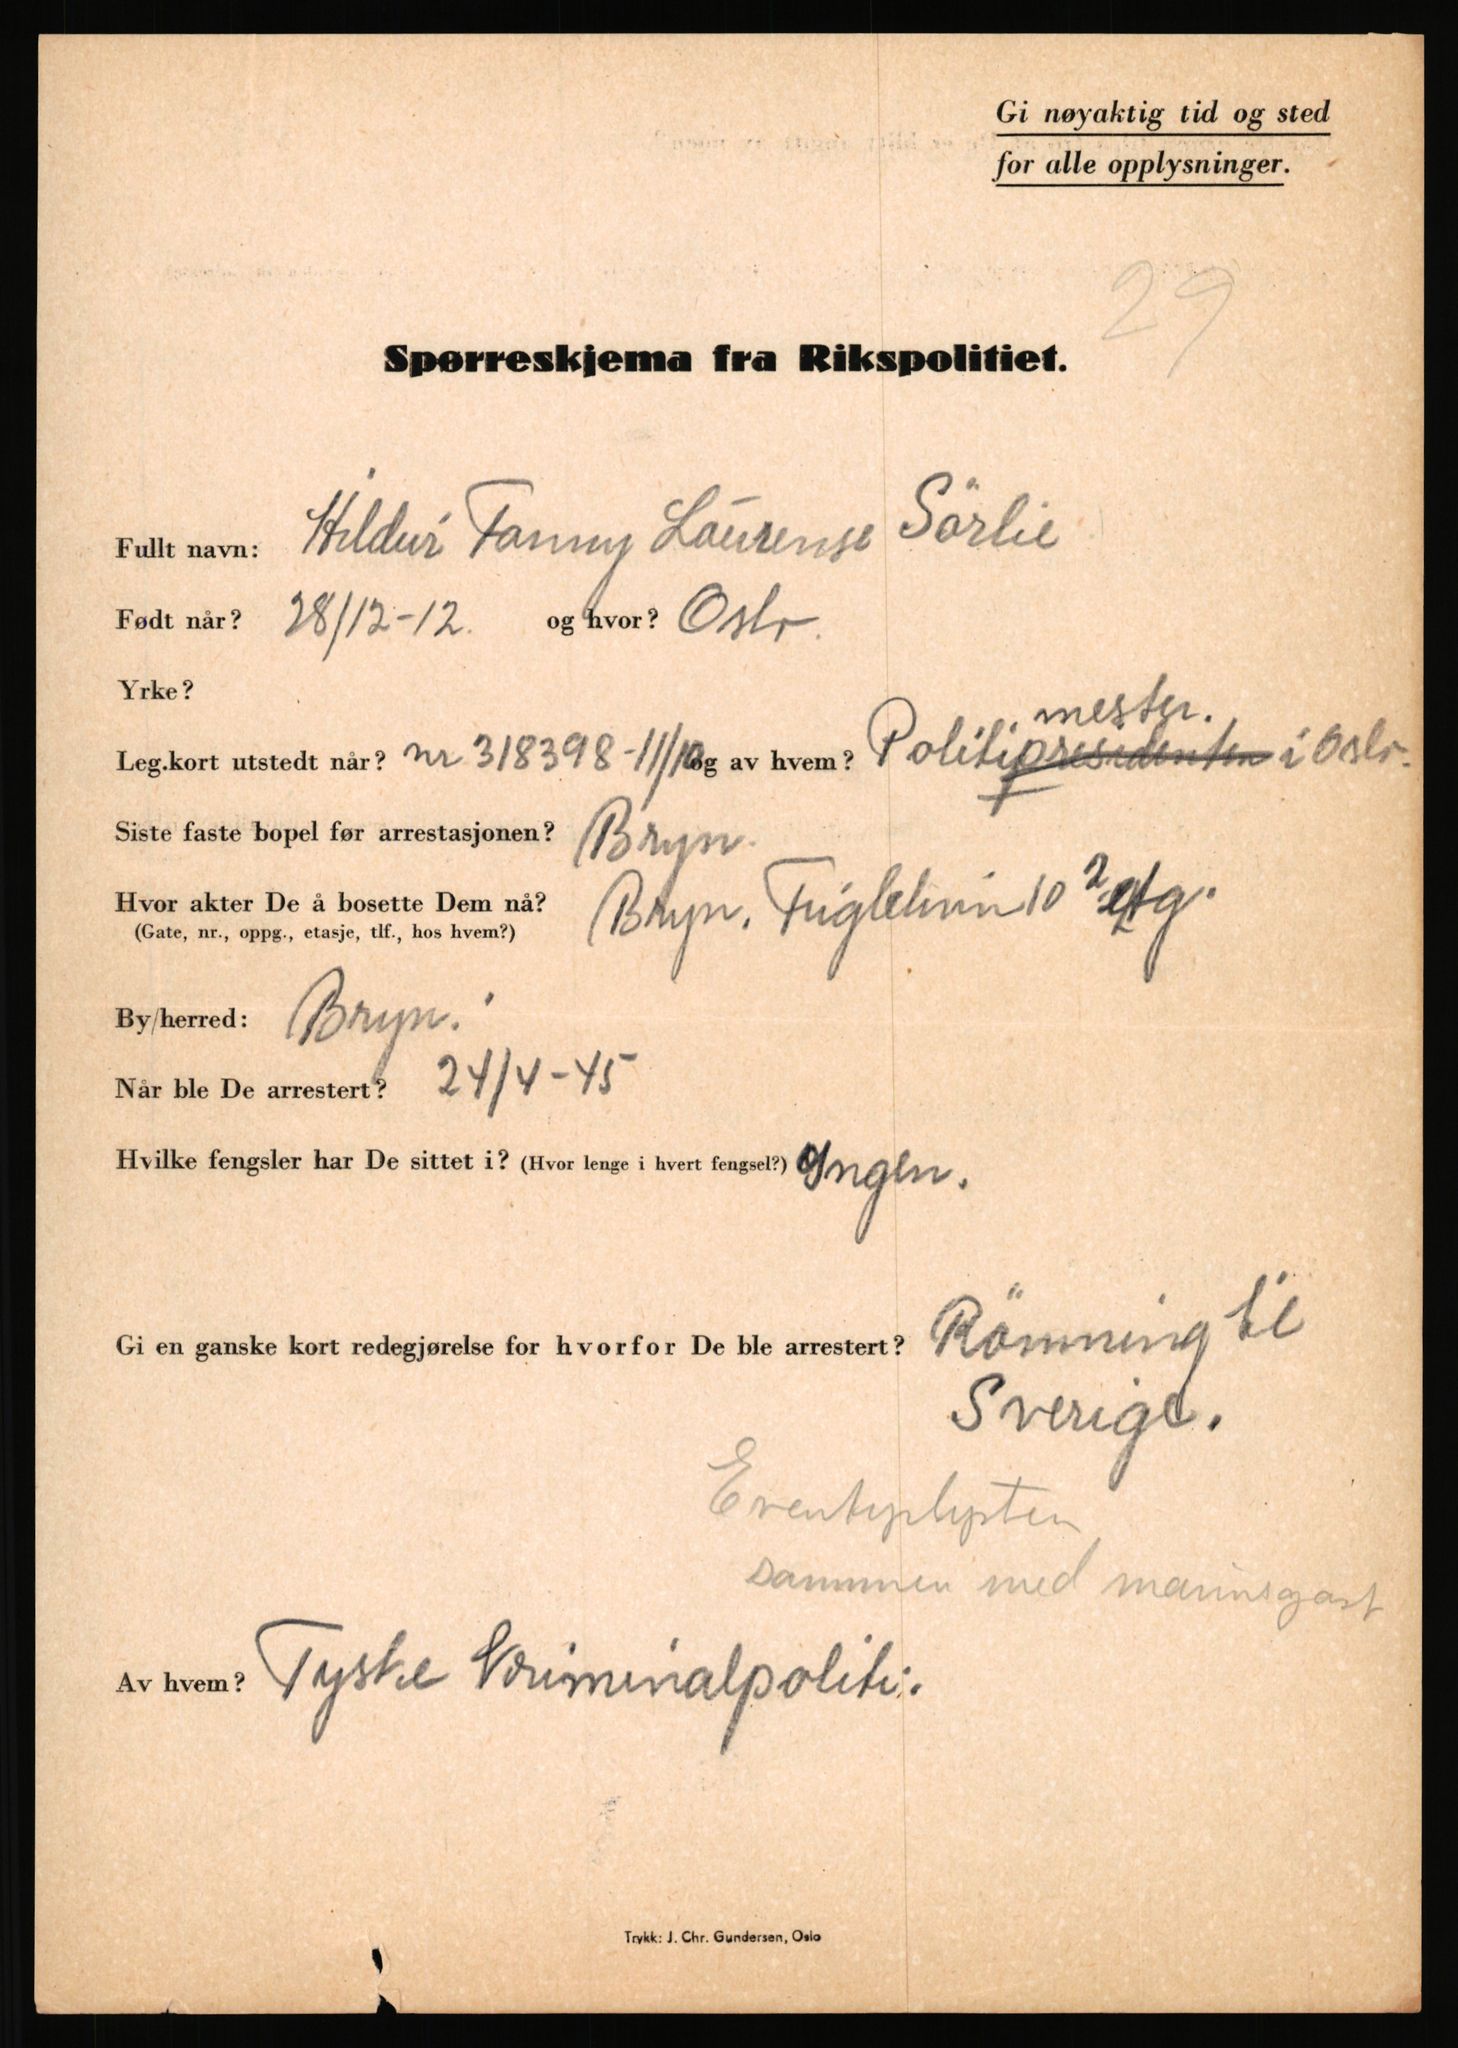 Gi nøyaktig tid og sted
for alle opplysninger.
29
Spørreskjema fra Rikspolitiet.
Fullt navn: Hildur Fanny Laurense Sörlie
Født når? 28/12-12. og hvor? Oslo.
Yrke?
mester.
Leg.kort utstedt når? nr 318398-11/10 og av hvem? Politipresidenten i Oslo.
Siste faste bopel før arrestasjonen? Bryn.
Hvor akter De å bosette Dem nå? Bryn. 10 2 etg.
(Gate, nr., oppg., etasje, tlf., hos hvem?)
By/herred: Bryn.
Når ble De arrestert? 24/4-45
Hvilke fengsler har De sittet i? (Hvor lenge i hvert fengsel?) Ingen.
Gi en ganske kort redegjørelse for hvorfor De ble arrestert? Römning til
Sverige.
Eventyrlysten
sammen med marinsgast
Av hvem? Tyske Kriminalpoliti.
Trykk: J. Chr. Gundersen, Oslo